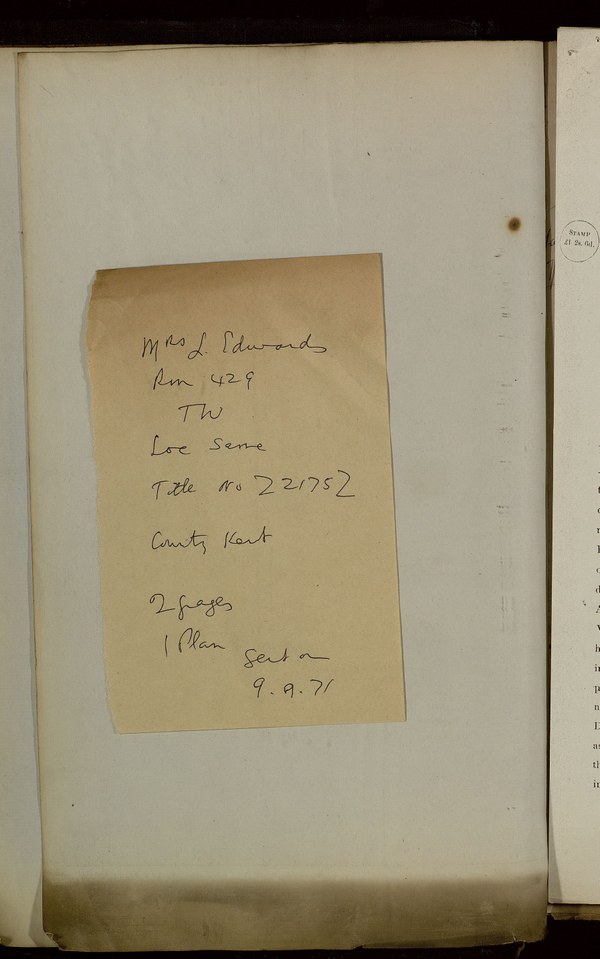 Mrs L. Edwards
Rm 429
TW
Loc Serre
Title No Z22175Z
County Kent
2 pages
1 Plan
Sent on
9.9.71
STAMP
£1 2s. 6d.